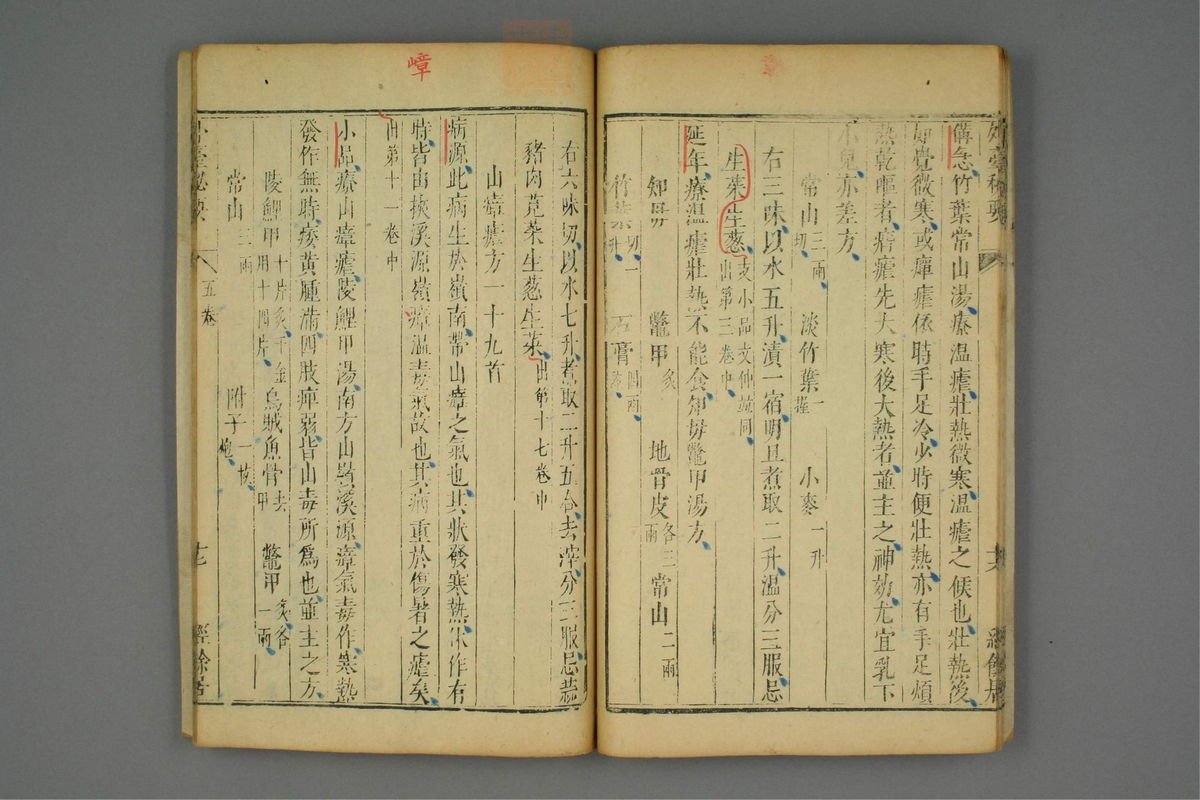 備急竹葉常山湯療溫瘧壯熱微寒溫瘧之候也壯熱後
如覺微寒或癉瘧依時手足冷少時便壯熱亦有手足煩
熱乾嘔者癆瘧先大寒後大熱者並主之神効尤宜乳下
小兒亦差方
常山三兩切 淡竹葉一握 小麥一升
右三味以水五升漬一宿明旦煮取二升溫分三服忌
生菜生葱文小品文仲
出第三卷中
延年療溫瘧壯熱不能食知母鼈甲湯方
知母 鼈甲炙 地骨皮各三兩 常山二兩
竹葉切一升 石膏四兩
右六味切以水七升煮取二升五合去滓分三服忌蒜
豬肉莧菜生葱生菜出第十七卷中
山瘴瘧方一十九首
病源此病生於嶺南帶山瘴之氣也其狀發寒熱休作有
時皆由挾溪源嶺瘴溫毒氣故也其病重於傷暑之瘧矣
出第十一卷中
小品療山瘴瘧陵鯉甲湯南方山嶺溪源瘴氣毒作寒熱
發作無時痿黃腫滿四肢痺弱皆山毒所爲也並主之方
陵鯉甲十片炙千金用十四片 烏賊魚骨去甲 鼈甲炙各一兩
常山三兩 附子一枚炮
五卷
七
經餘居
嶂